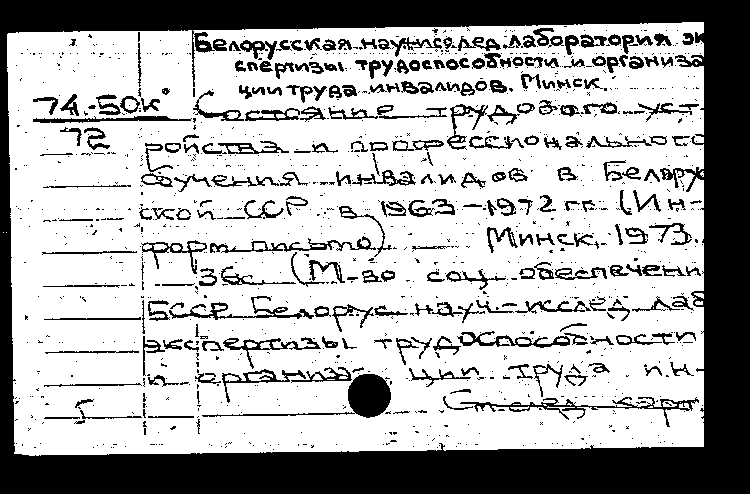 Белорусская науч.-исслед. лаборатория эк
спертизы трудоспособности и организа
ции труда инвалидов. Минск.
74.-50к Состояние трудового уст-
72 ройства и профессионального
обучения инвалидов в Белорус
ской ССР в 1963-1972 гг. (Ин-
форм. письмо). Минск, 1973.
36с. (М-во соц. обеспечени
БССР. Белорус. науч-исслед лаб
экспертизы трудоспособности
и организа- ции труда ин-
5 См. след. карт.